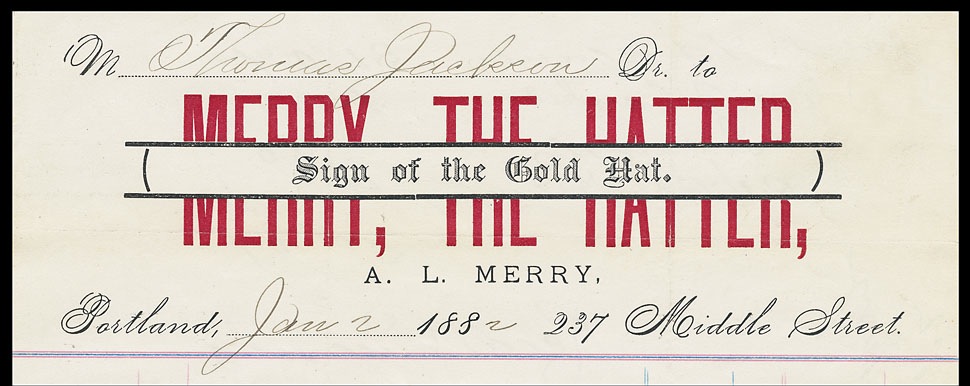 M Thomas Jackson Dr. to
MERRY, THE HATTER,
Sign of the Gold Hat.
A. L. MERRY,
Portland, Jan 2 1882 237 Middle Street.